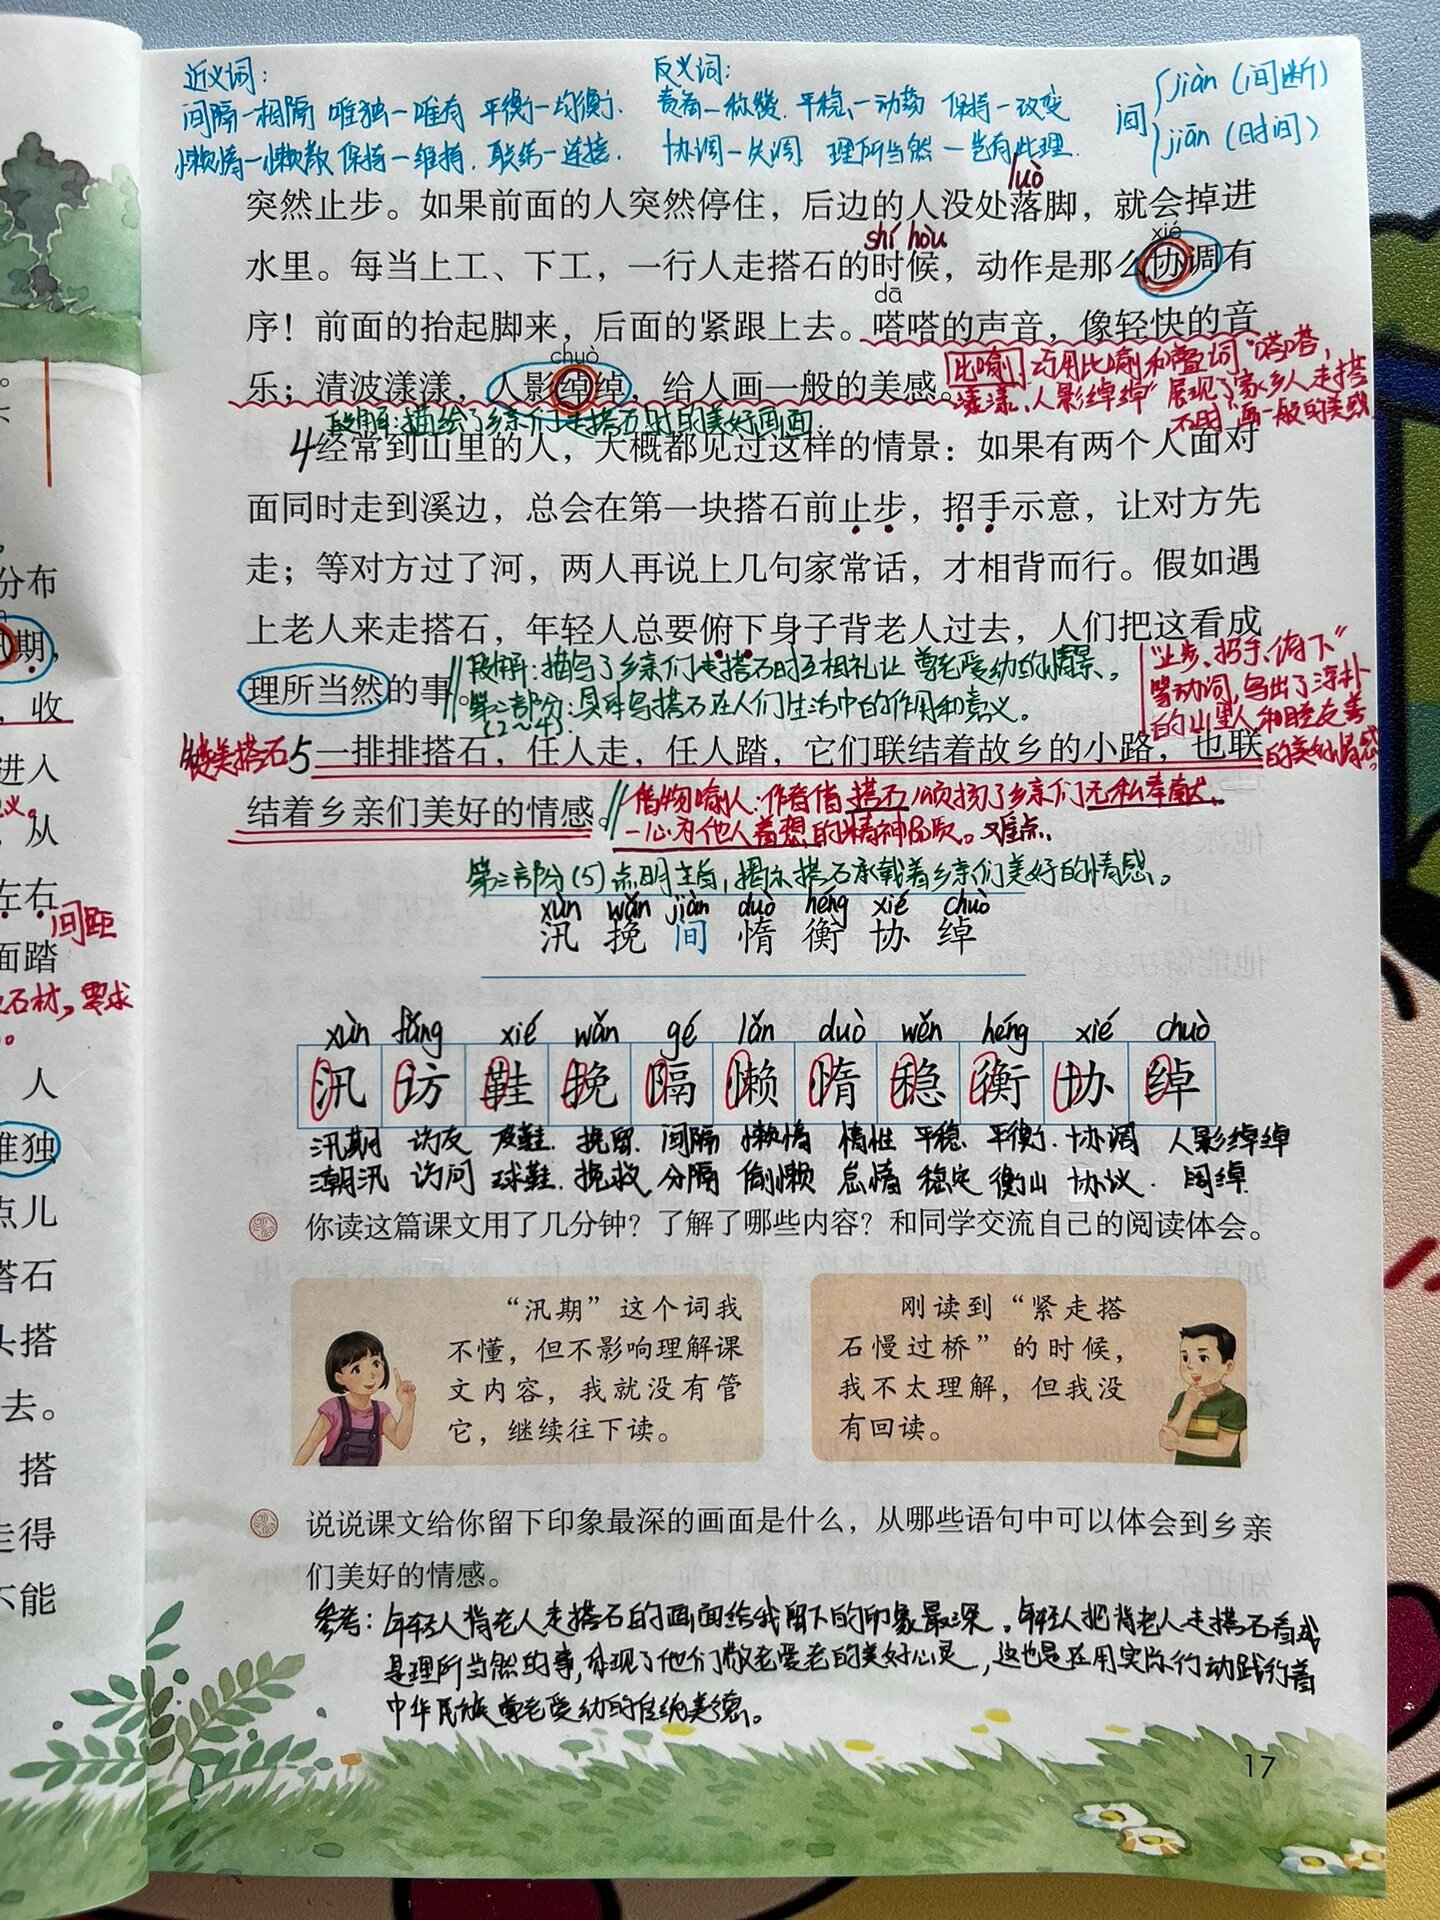 近义词：
间隔—相隔 唯独—唯有 平衡—均衡
懒惰—懒散 保持—维持 联结—连接
反义词：
责备—称赞 平稳—动荡 保持—改变
协调—失调 理所当然—岂有此理
间 jiàn（间断）
jiān（时间）
luò
突然止步。如果前面的人突然停住，后边的人没处落脚，就会掉进
shí hòu xié
水里。每当上工、下工，一行人走搭石的时候，动作是那么协调有
dā
序！前面的抬起脚来，后面的紧跟上去。嗒嗒的声音，像轻快的音
chuò
乐；清波漾漾，人影绰绰，给人画一般的美感。
比喻 巧用比喻和叠词“嗒嗒，
漾漾、人影绰绰”展现了家乡人走搭
石时“画一般的美感
段解：描绘了乡亲们走搭石时的美好画面
4 经常到山里的人，大概都见过这样的情景：如果有两个人面对
面同时走到溪边，总会在第一块搭石前止步，招手示意，让对方先
走；等对方过了河，两人再说上几句家常话，才相背而行。假如遇
上老人来走搭石，年轻人总要俯下身子背老人过去，人们把这看成
理所当然的事。
段解：描写了乡亲们走搭石时互相礼让 尊老爱幼的情景。
第二部分：具体写搭石在人们生活中的作用和意义。
（2~4）
“止步、招手、俯下”
等动词，写出了淳朴
的山里人和睦友善
的美好情感。
赞美搭石
5 一排排搭石，任人走，任人踏，它们联结着故乡的小路，也联
结着乡亲们美好的情感。
借物喻人：作者借搭石颂扬了乡亲们无私奉献、
一心为他人着想的精神品质。难点
第三部分（5）点明主旨，揭示搭石承载着乡亲们美好的情感。
xùn wǎn jiàn duò héng xié chuò
汛 挽 间 惰 衡 协 绰
xùn fǎng xié wǎn gé lǎn duò wěn héng xié chuò
汛 访 鞋 挽 隔 懒 惰 稳 衡 协 绰
汛期 访友 皮鞋 挽留 间隔 懒惰 惰性 平稳 平衡 协调 人影绰绰
潮汛 访问 球鞋 挽救 分隔 偷懒 怠惰 稳定 衡山 协议 阔绰
你读这篇课文用了几分钟？了解了哪些内容？和同学交流自己的阅读体会。
“汛期”这个词我
不懂，但不影响理解课
文内容，我就没有管
它，继续往下读。
刚读到“紧走搭
石慢过桥”的时候，
我不太理解，但我没
有回读。
说说课文给你留下印象最深的画面是什么，从哪些语句中可以体会到乡亲
们美好的情感。
参考：年轻人背老人走搭石的画面给我留下的印象最深。年轻人把背老人走搭石看成
是理所当然的事，体现了他们敬老爱老的美好心灵，这也是在用实际行动践行着
中华民族尊老爱幼的传统美德。
17
分布
期，
，收
进入
义。
从
左右
间距
面踏
石材，要求
人
唯独
点儿
搭石
头搭
去。
搭
走得
不能